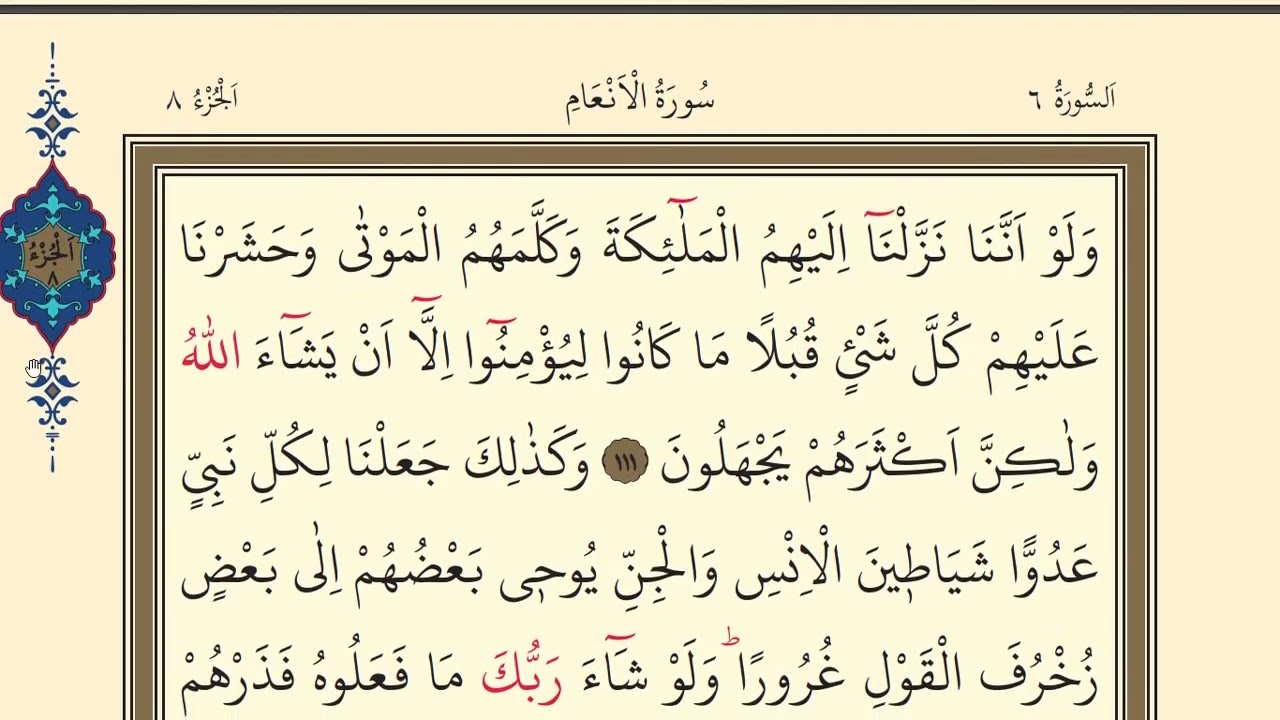 اَلسُّورَةُ ٦
سُورَةُ الْاَنْعَامِ
اَلْجُزْءُ ٨
اَلْجُزْءُ
٨
وَلَوْ اَنَّنَا نَزَّلْنَٓا اِلَيْهِمُ الْمَلٰٓئِكَةَ وَكَلَّمَهُمُ الْمَوْتٰى وَحَشَرْنَا
عَلَيْهِمْ كُلَّ شَيْءٍ قُبُلًا مَا كَانُوا لِيُؤْمِنُٓوا اِلَّٓا اَنْ يَشَٓاءَ اللّٰهُ
وَلٰكِنَّ اَكْثَرَهُمْ يَجْهَلُونَ ١١١ وَكَذٰلِكَ جَعَلْنَا لِكُلِّ نَبِيٍّ
عَدُوًّا شَيَاط۪ينَ الْاِنْسِ وَالْجِنِّ يُوح۪ى بَعْضُهُمْ اِلٰى بَعْضٍ
زُخْرُفَ الْقَوْلِ غُرُورًاۜ وَلَوْ شَٓاءَ رَبُّكَ مَا فَعَلُوهُ فَذَرْهُمْ